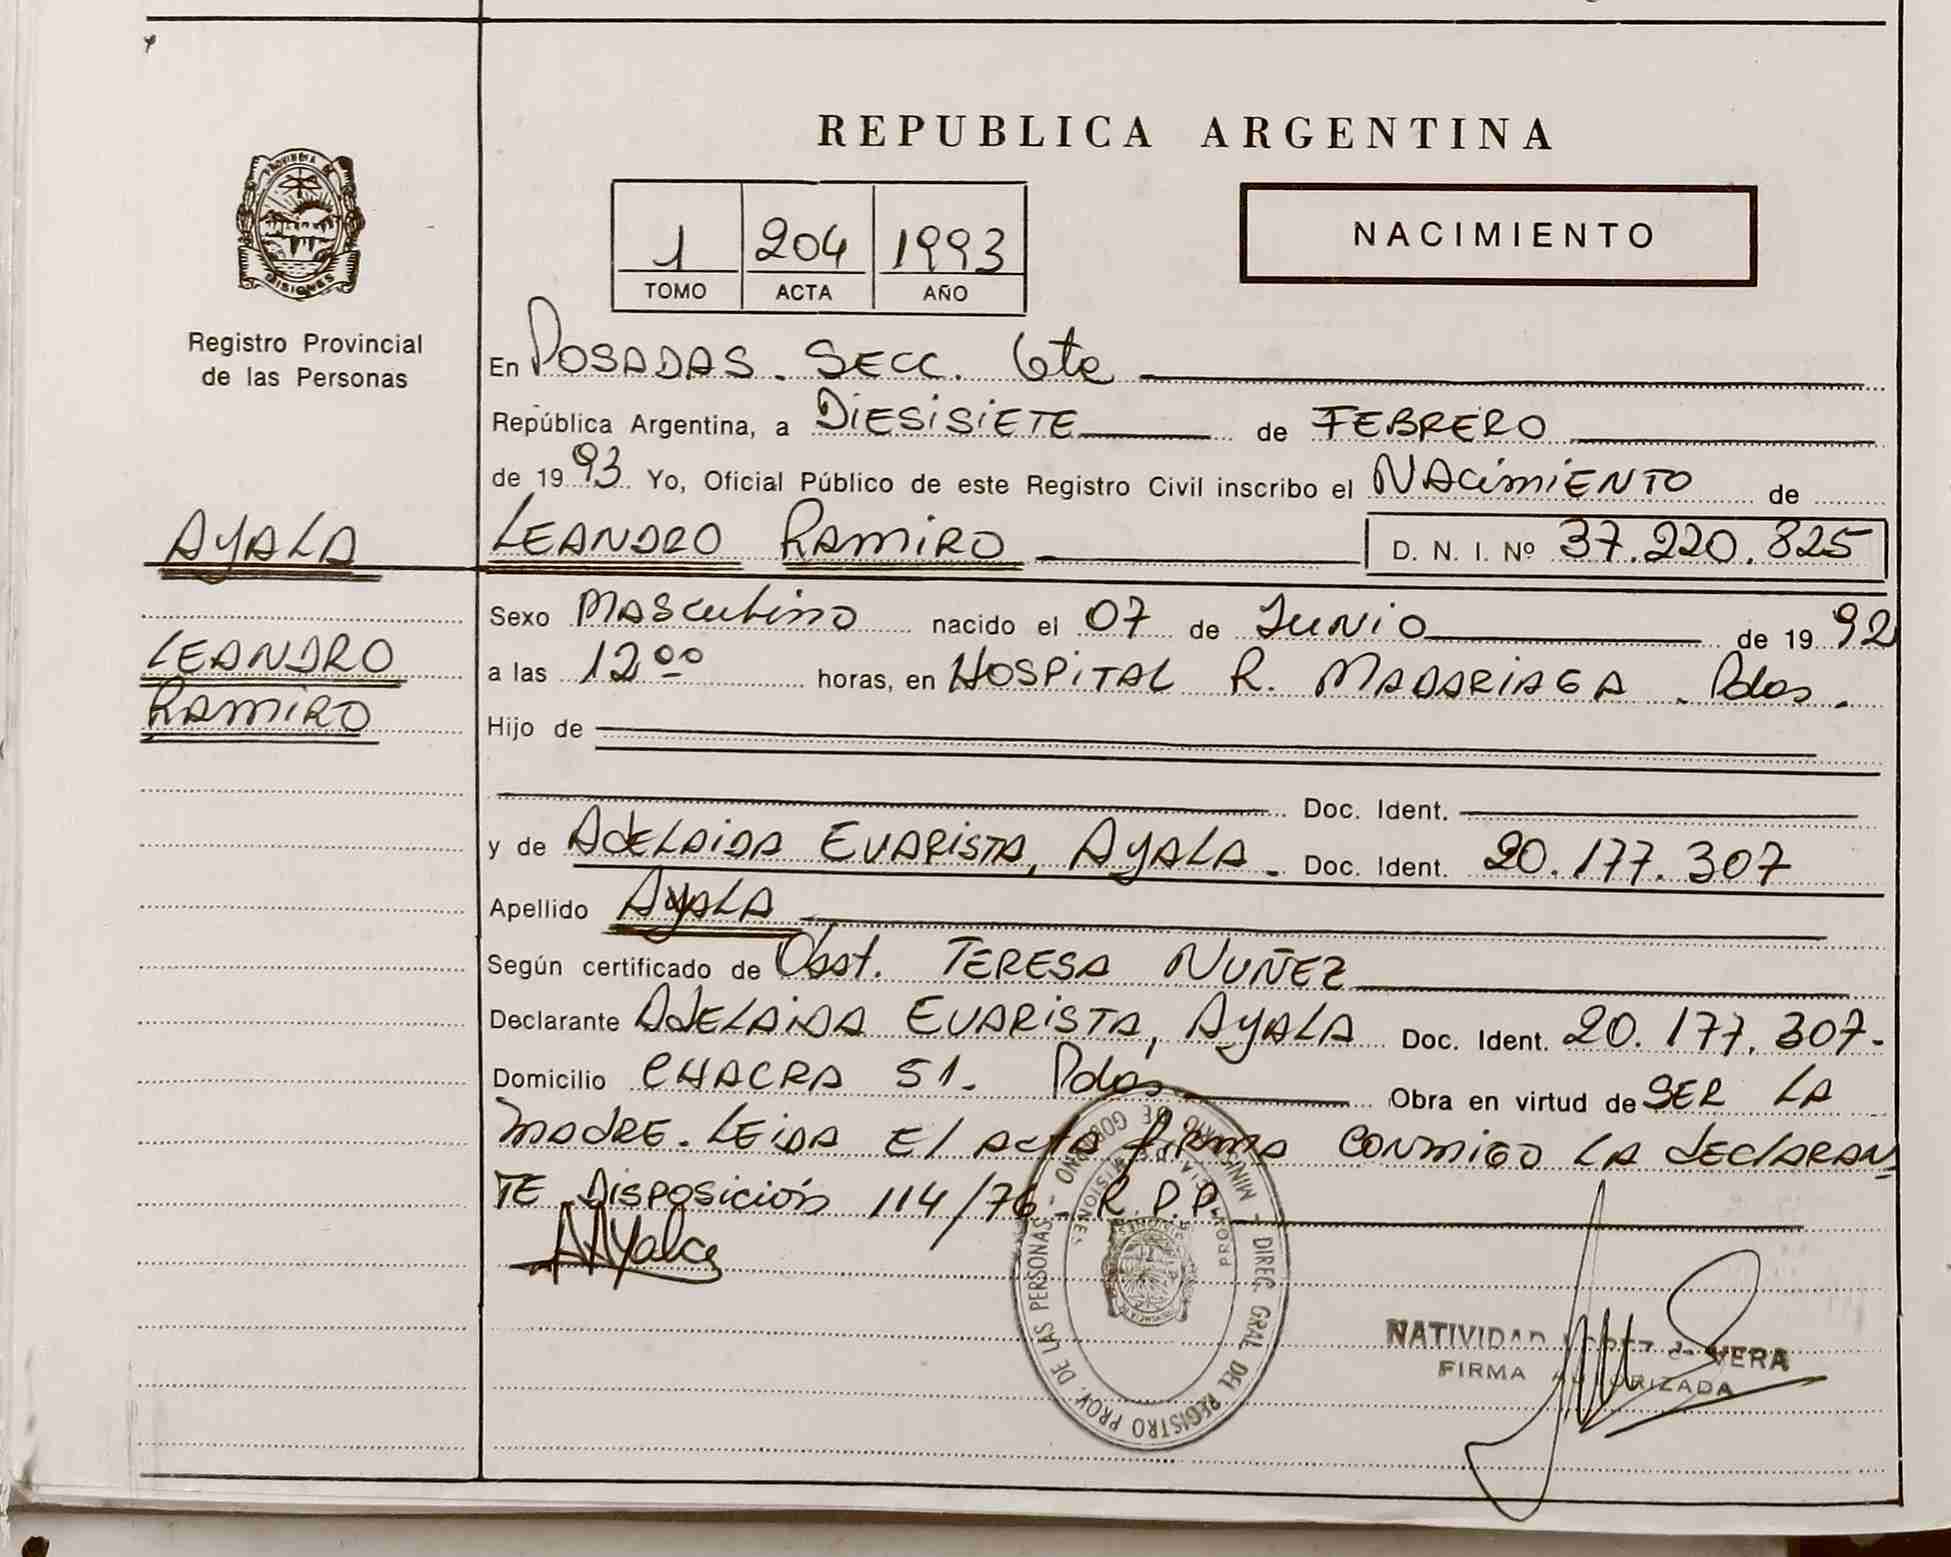 REPUBLICA ARGENTINA
PROVINCIA DE
MISIONES
Registro Provincial
de las Personas
1 204 1993
TOMO ACTA AÑO
NACIMIENTO
En POSADAS. SECC. 6ta
República Argentina, a DIESISIETE de FEBRERO
de 1993 Yo, Oficial Público de este Registro Civil inscribo el NACIMIENTO de
AYALA
LEANDRO RAMIRO D. N. I. Nº 37.220.825
LEANDRO
RAMIRO
Sexo MASCULINO nacido el 07 de JUNIO de 1992
a las 12 ºº horas, en HOSPITAL R. MADARIAGA. Pdas.
Hijo de
Doc. Ident.
y de ADELAIDA EVARISTA, AYALA. Doc. Ident. 20.177.307
Apellido AYALA
Según certificado de Obst. TERESA NUÑEZ
Declarante ADELAIDA EVARISTA, AYALA Doc. Ident. 20.177.307.
Domicilio CHACRA 51. Pdas. Obra en virtud de SER LA
MADRE. LEIDA El ACTA firma CONMIGO LA dECLARAN
TE DISPOSICIÓN 114/76 - R.P.P.
AAyala
MINISTERIO DE GOBIERNO - DIREC. GRAL. DEL REGISTRO PROV. DE LAS PERSONAS -
PROVINCIA DE MISIONES
NATIVIDAD LOPEZ de VERA
FIRMA AUTORIZADA